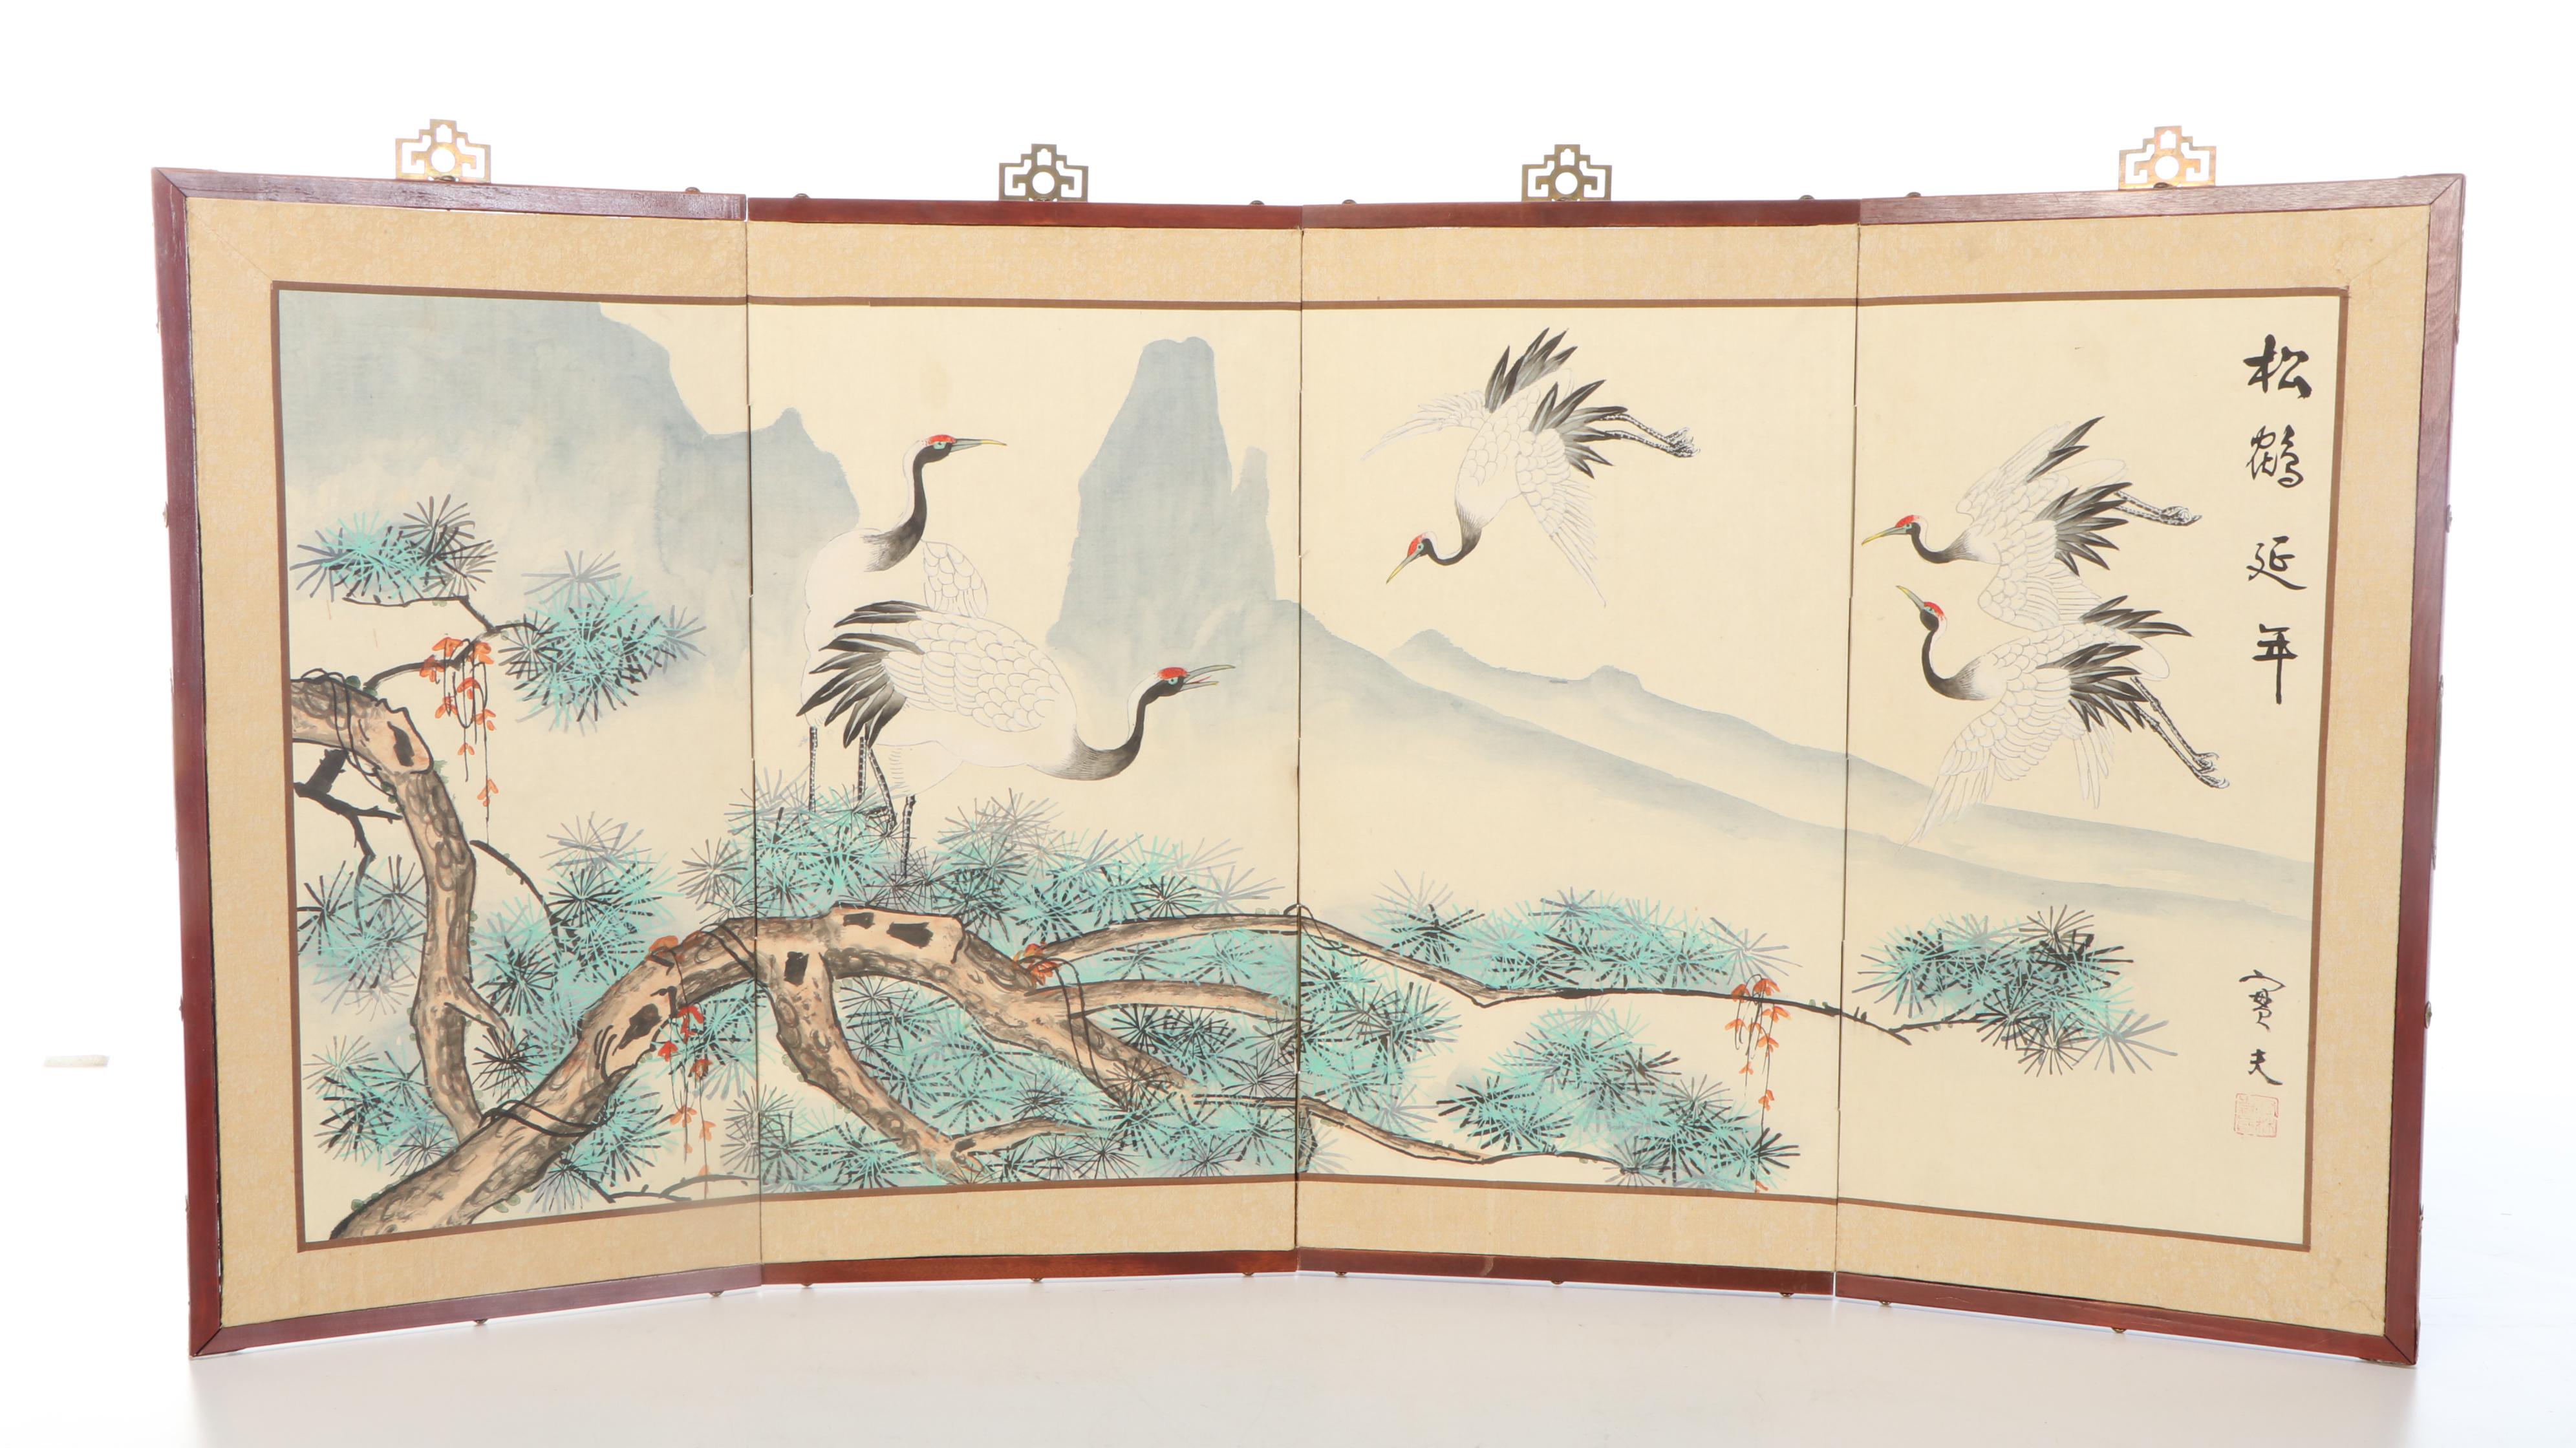 松鶴延年
寶夫